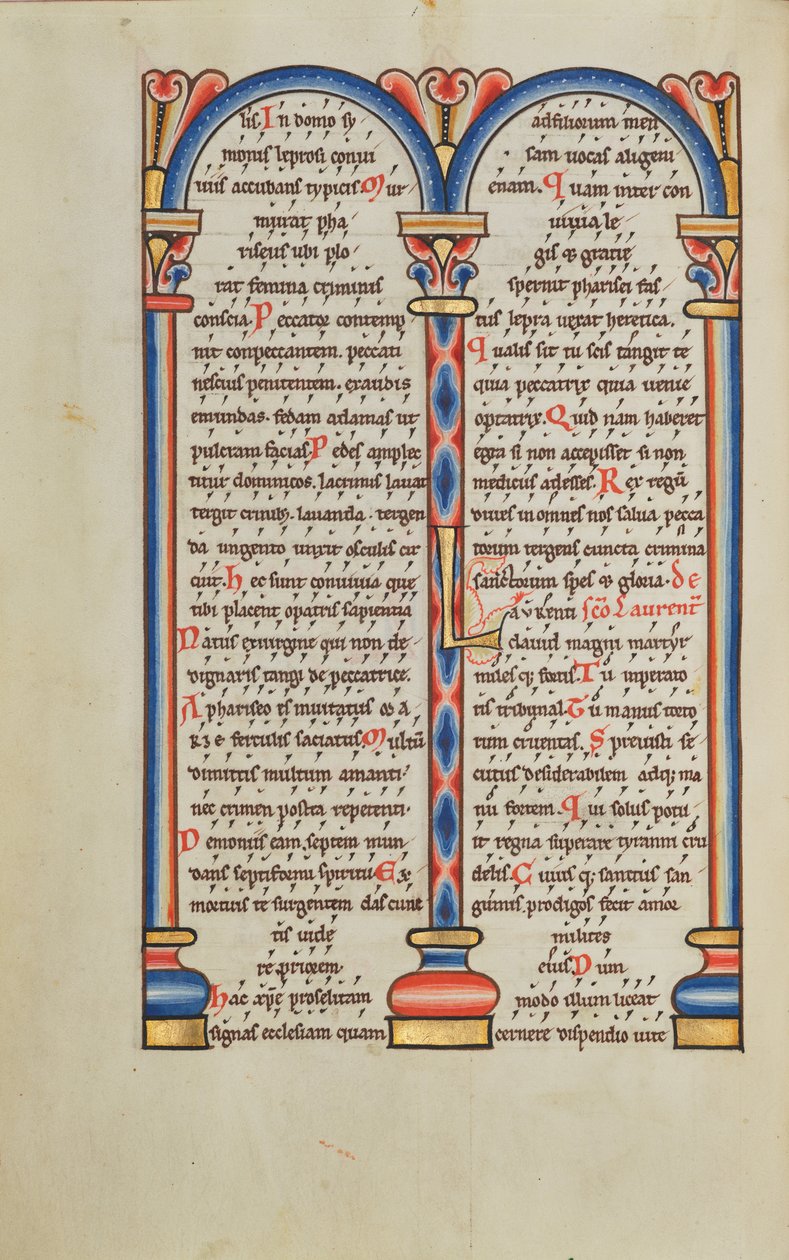 lis. In domo sy
monis leprosi convi
viis accubans typicis. Mur
murat pha
riseus ubi plo
rat femina criminis
conscia. Peccator contemp
nit conpeccantem. peccati
nescius penitentem. exaudis
emundas. fedam adamas ut
pulcram facias. Pedes amplec
titur dominicos. lacrimis lavat
tergit crinibꝫ. lavanda. tergen
da ungento unxit osculis cir
cuit. Hec sunt convivia que
tibi placent opatris sapientia
Natus exvirgine qui non de
dignaris tangi de peccatrice.
A phariseo es invitatus
fertulis saciatus. Multū
dimittis multum amanti.
nec crimen postea repetenti.
Demoniis eam. septem mun
dans septiformi spiritu. Ex
mortuis te surgentem das cunc
tis vide
re priorem.
Hac xp̄e proselitam
signas ecclesiam quam
adfiliorum men
sam vocas aligeni
enam. Quam inter con
vivia le
gis & gratie
spernit pharisei fas
tus lepra vexat heretica.
Qualis sit tu scis tangit te
quia peccatrix quia venie
optatrix. Quid nam haberet
egra si non accepisset si non
medicus adesses. Rex regū
dives in omnes nos salva pecca
torum tergens cuncta crimina
sanctorum spes & gloria. de
Laurenti sc̄o Laurent
david magni martyr
milesqꝫ fortis. Tu inperato
ris tribunal. Tu manus torto
rum cruentas. Sprevisti se
cutus desiderabilem adqꝫ ma
nu fortem. Qui solus potu
it regna superare tyranni cru
delis. Cuiusqꝫ sanctus san
guinis prodigos fecit amor
milites
eius. Dum
modo illum liceat
cernere dispendio vite